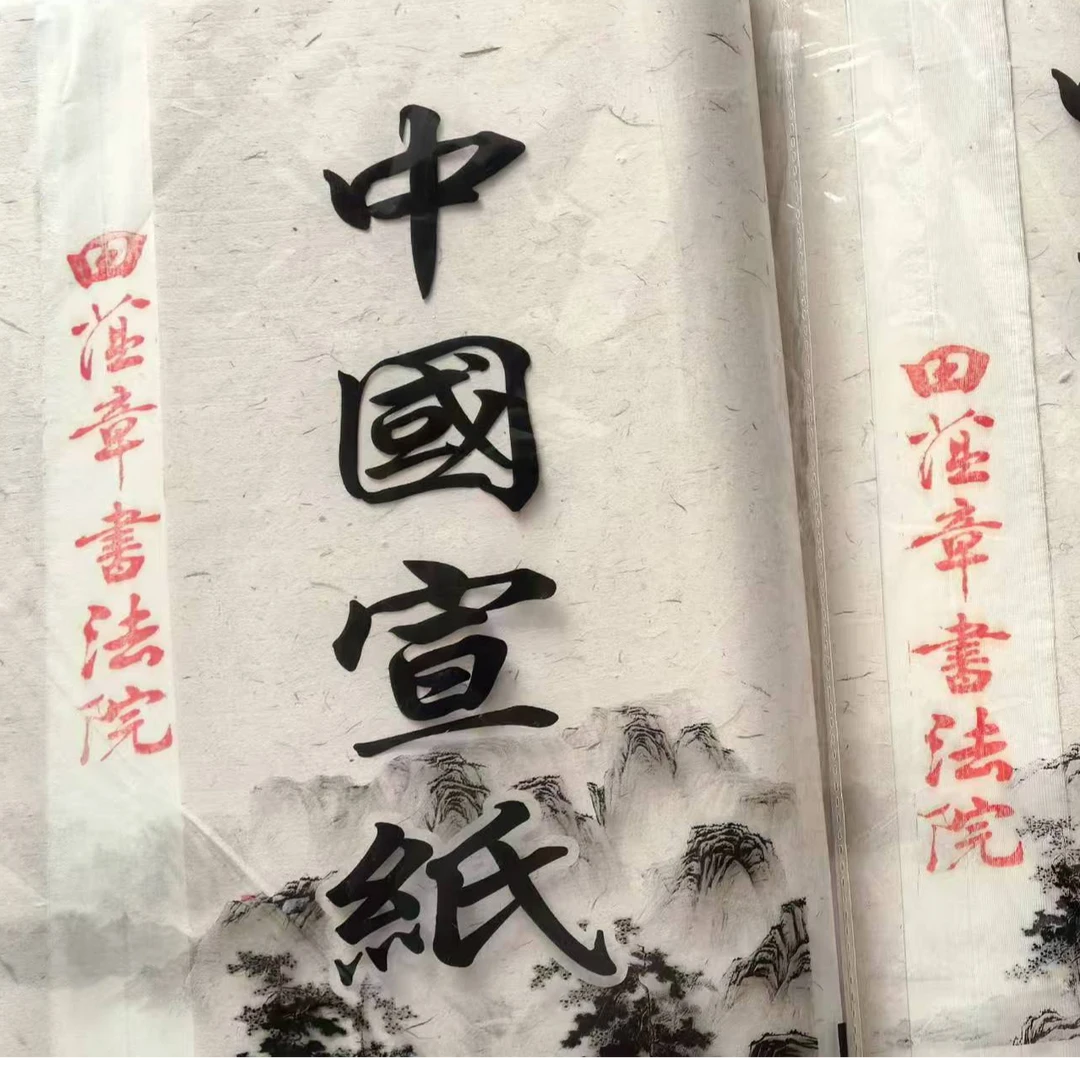 田蕴章書法院
中國宣紙
田蕴章書法院